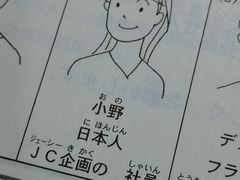 おの
小野
にほんじん
日本人
ジェーシーきかく　しゃいん
ＪＣ企画の　社員
デ
フラ